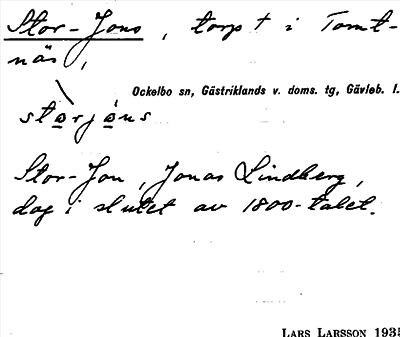 Stor-Jons, torp † i Tomt-
näs,
Ockelbo sn, Gästriklands v. doms. tg, Gävleb. l.
storjons
Stor-Jon, Jonas Lindberg,
dog i slutet av 1800-talet.
LARS LARSSON 1935